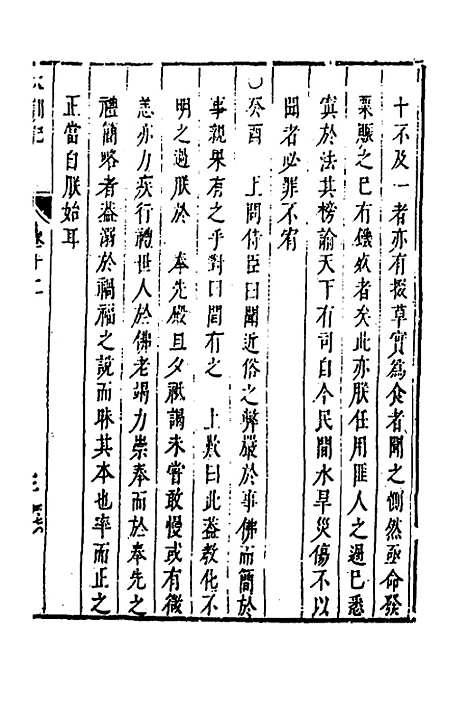 十不及一者亦有掇草實為食者聞之惻然亟命發
粟賑之已有饑死者矣此亦朕任用匪人之過已悉
寘於法其榜諭天下有司自今民間水旱災傷不以
聞者必罪不宥
○癸酉　上問侍臣曰聞近俗之弊嚴於事佛而簡於
事親果有之乎對曰間有之　上歎曰此蓋教化不
明之過朕於　奉先殿旦夕祇謁未嘗敢慢或有微
恙亦力疾行禮世人於佛老竭力崇奉而於奉先之
禮簡略者蓋溺於禍福之說而昧其本也率而正之
正當自朕始耳
大訓記
卷十二